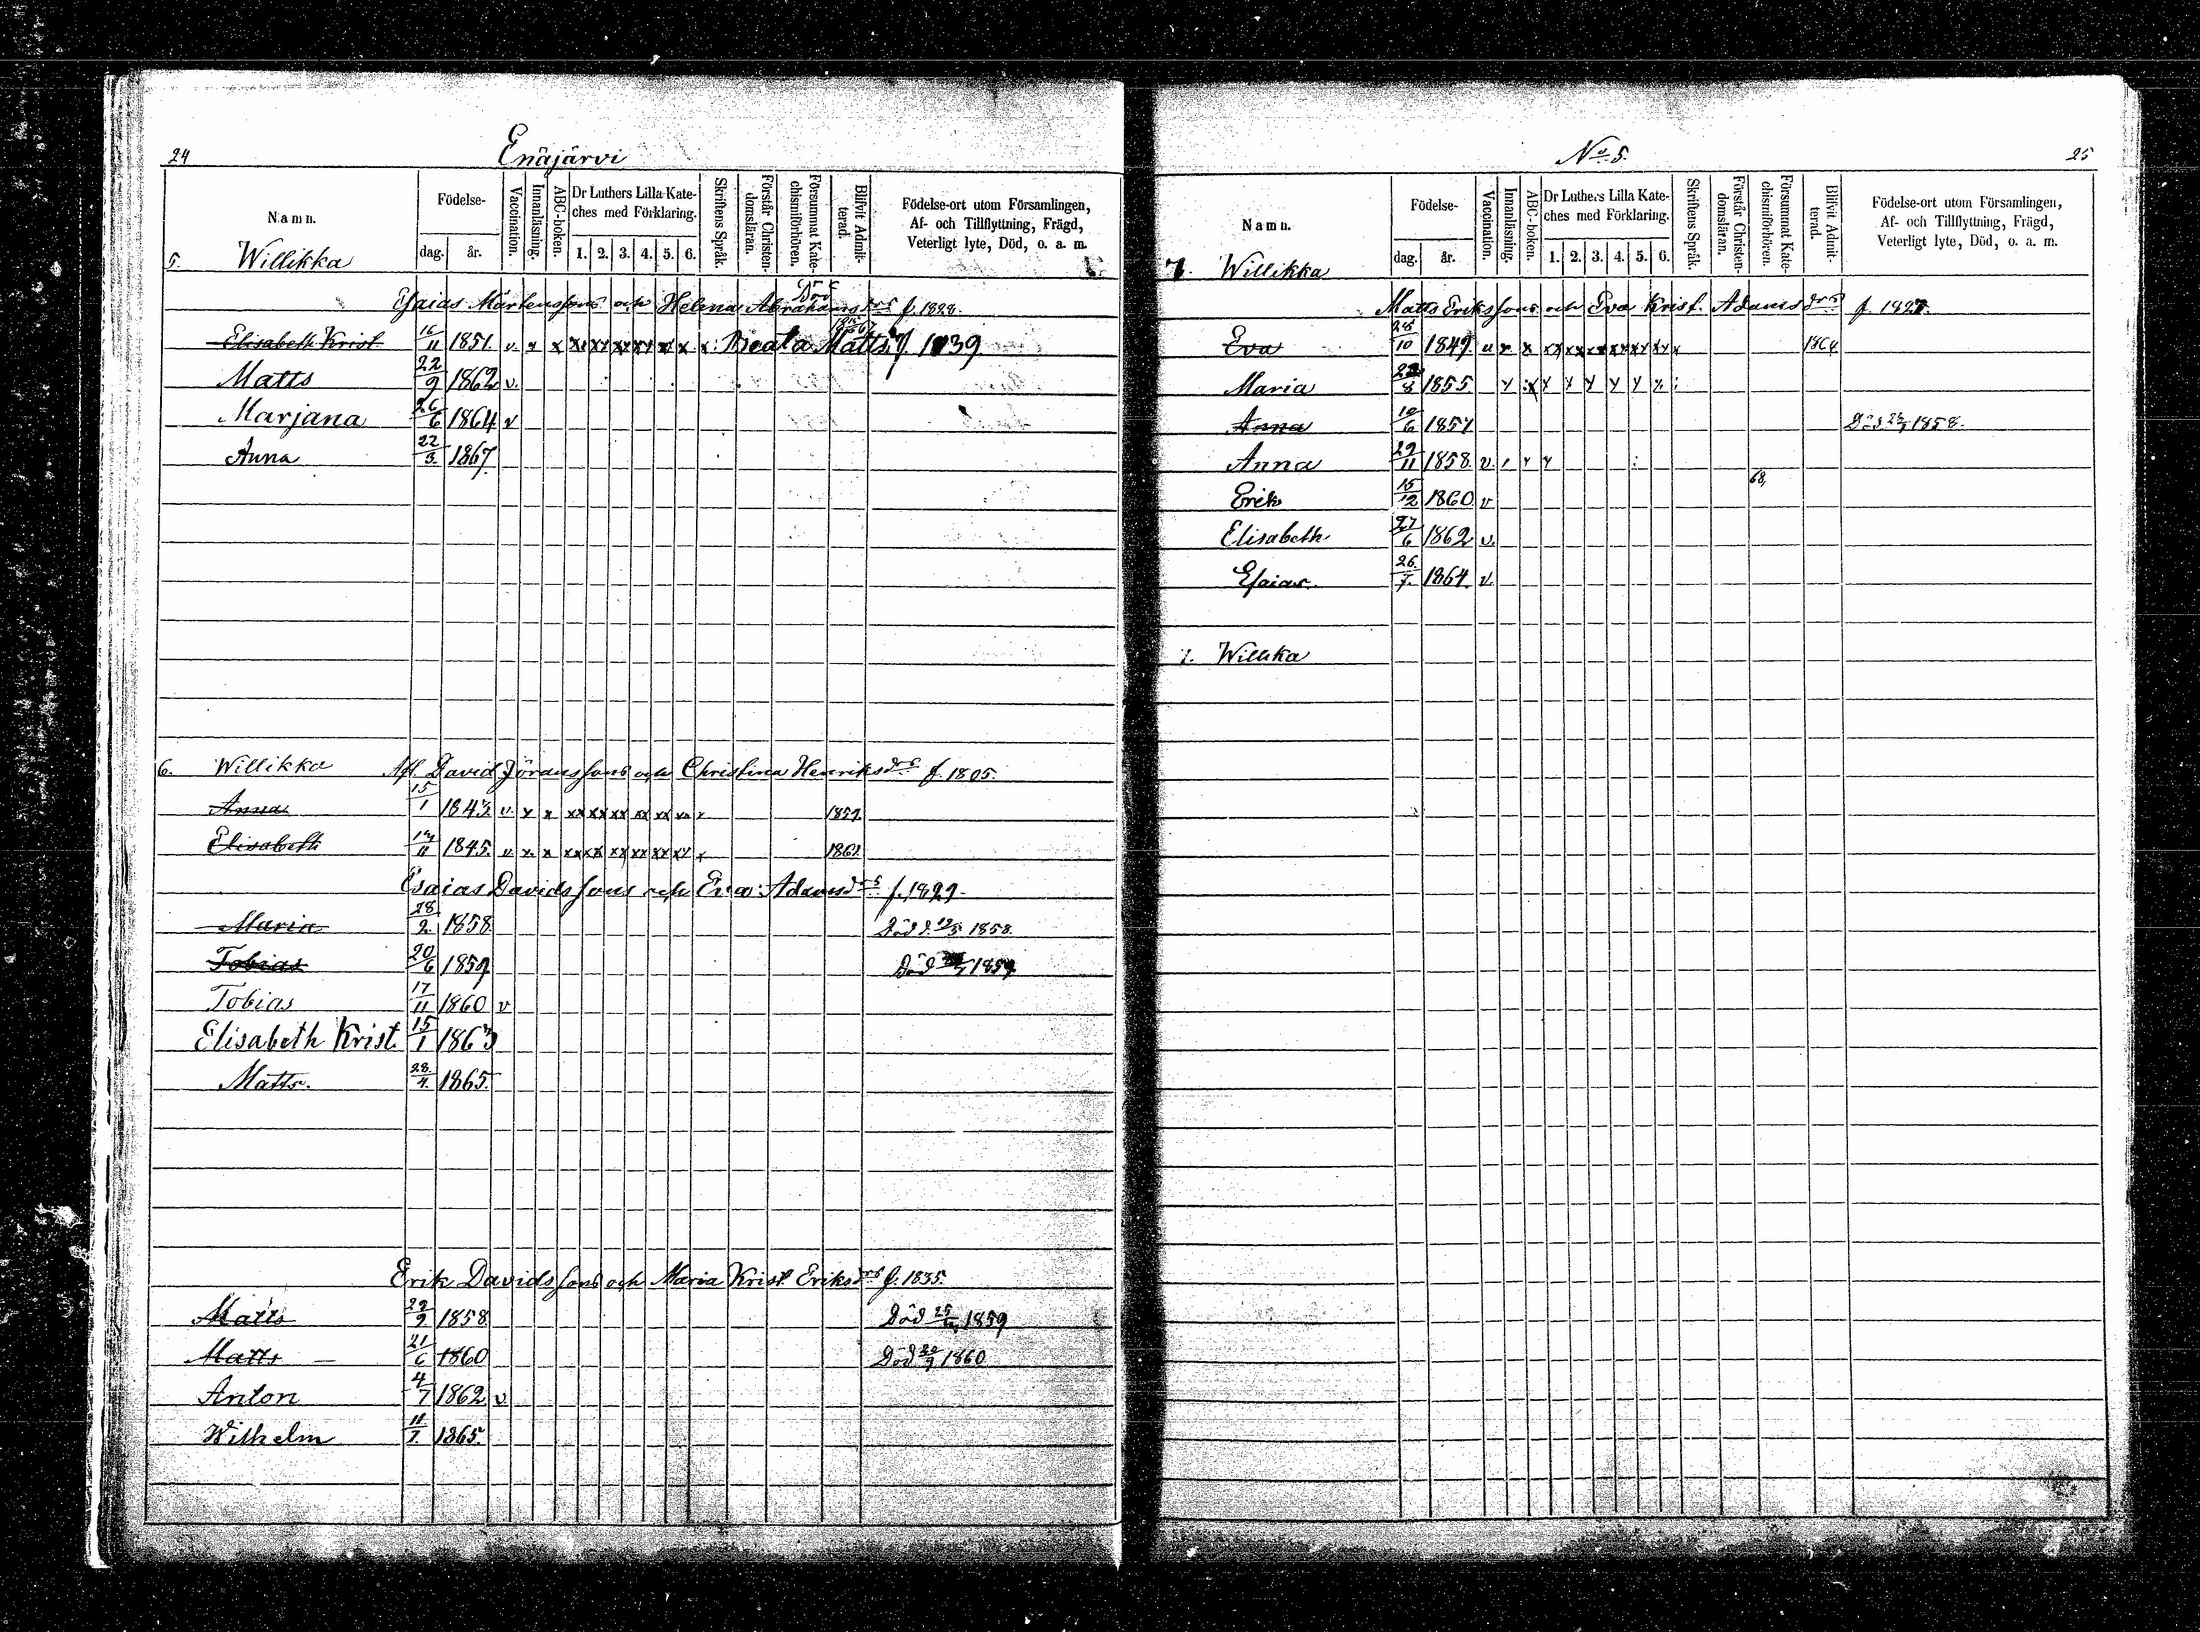 24
Enäjärvi
Namn.
Födelse-
dag.
år.
Vaccination.
Innanläsning.
ABC-boken.
Dr Luthers Lilla Kate-
ches med Förklaring.
1. 2. 3. 4. 5. 6.
Skriftens Språk.
Förstår Christen-
domsläran.
Försummat Kate-
chismiförhören.
Blifvit Admit-
terad.
Födelse-ort utom Församlingen,
Af- och Tillflyttning, Frägd,
Veterligt lyte, Död, o. a. m.
5. Willikka
Esaias Mårtenssons och Helena Abrahamsdrs f. 1828.
Elisabeth Krist. 16/11 1851. v. x x xx xx xx xx x x x Beata Matts. f. 1839
Matts 22/9 1862 v.
Marjana 26/6 1864 v
Anna 22/3. 1867.
6. Willikka Afl. David Jöranssons och Christina Henriksdrs f. 1805.
Anna 15/1 1843. v. x x xx xx xx xx xx xx x 1859
Elisabeth 1845. v. x x xx xx xx xx xx xx x 1862
Esaias Davidssons och Eva Adamsdrs f. 1829.
Maria 28/2. 1858. Död d. 1858.
Tobias 20/6 1859 Död 1859
Tobias 17/11 1860 v
Elisabeth Krist. 15/1 1863
Matts. 28./4. 1865.
Erik Davidssons och Maria Krist. Eriksdrs f. 1835.
Matts 29/9 1858 Död 1859
Matts 21/6 1860 Död 1860
Anton 4/7 1862 v.
Wilhelm 11/7. 1865.
No 5.
25
Namn.
Födelse-
dag.
år.
Vaccination.
Innanläsning.
ABC-boken.
Dr Luthers Lilla Kate-
ches med Förklaring.
1. 2. 3. 4. 5. 6.
Skriftens Språk.
Förstår Christen-
domsläran.
Försummat Kate-
chismiförhören.
Blifvit Admit-
terad.
Födelse-ort utom Församlingen,
Af- och Tillflyttning, Frägd,
Veterligt lyte, Död, o. a. m.
7. Willikka
Matts Erikssons och Eva Krist. Adamsdrs f. 1827.
Eva 28/10 1849. v x x xx xx xx xx xx xx x 1864
Maria 1855. x x x x x x x x
Anna 10/6 1857 Död 1858.
Anna 29/11 1858. v.
68,
Erik 15/12 1860. v
Elisabeth 27/6 1862 v.
Esaias. 26./7. 1864. v.
Willika